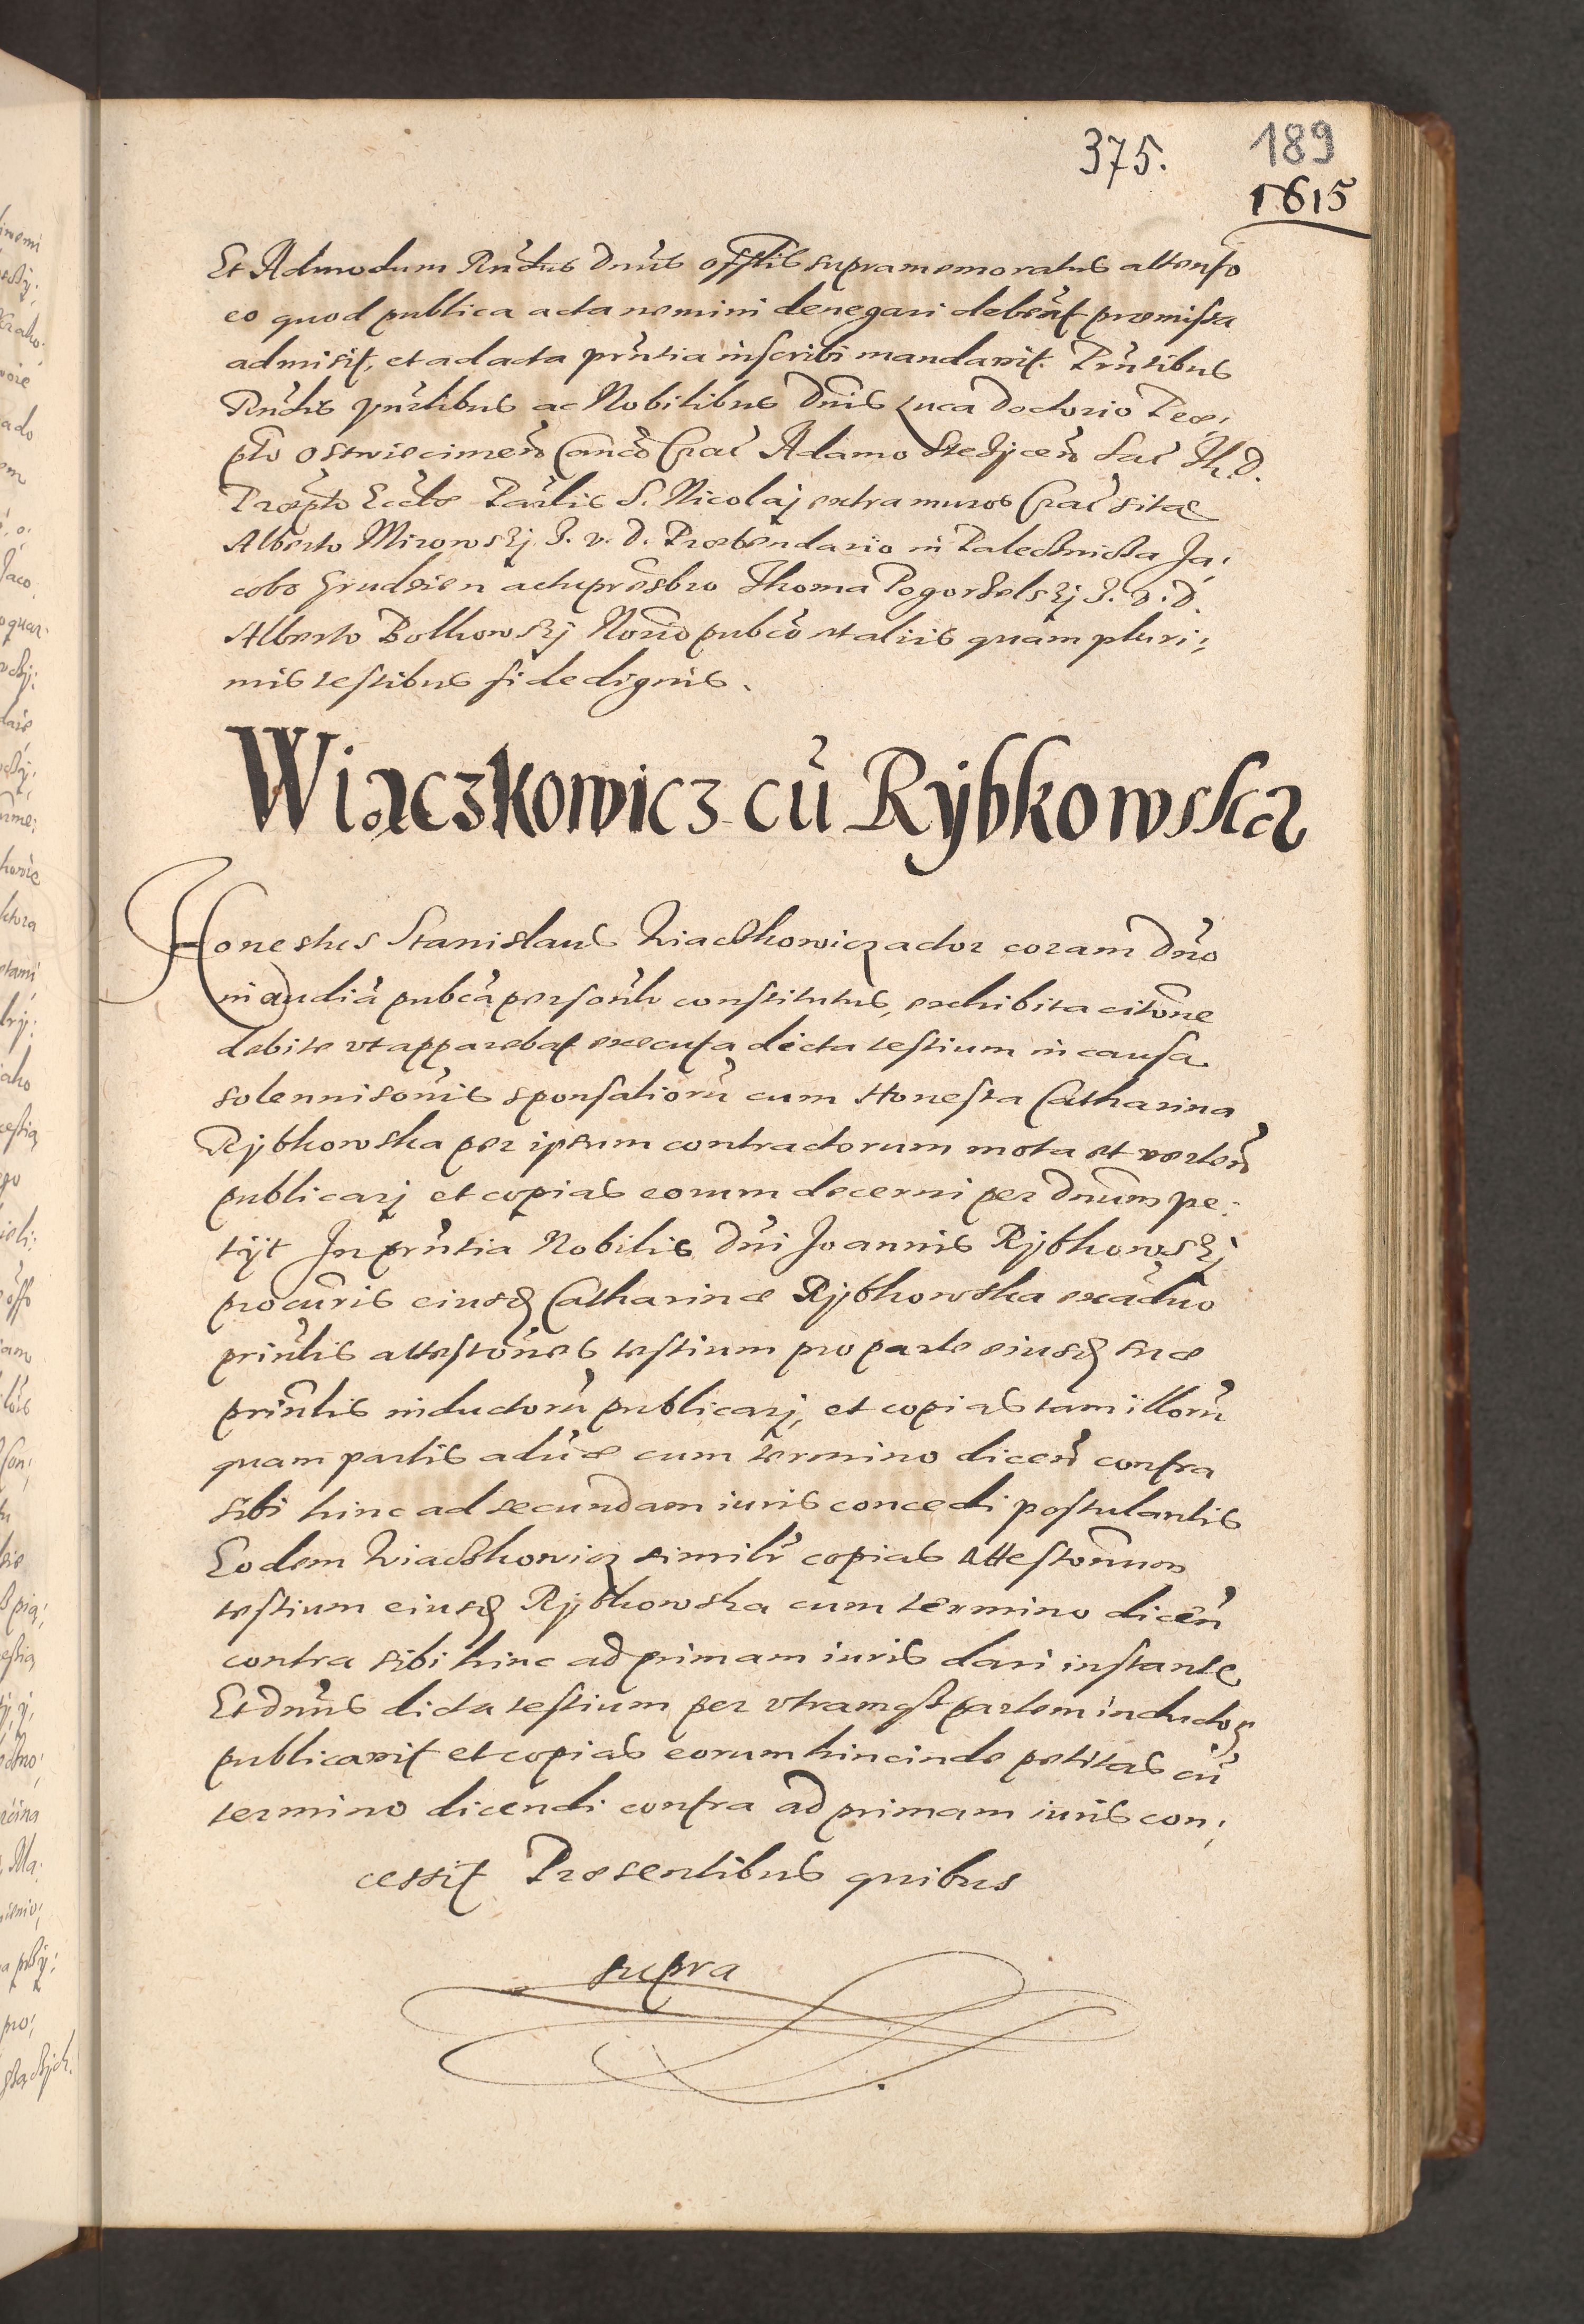 375. 189
1615
Et Admodum Rndus Dnus offlis supramemoratus attento
eo quod publica acta nemini denegari debeant præmissa
admisit, et ad acta pruntia inscribi mandavit. Pruntibus
Rndis ac Nobilibus Dnis Luca Doctorio Præ;
pto Oswiecimen Canco Crac Adamo Stezycen Sac Th. D.
Præpto Eccle Parlis S. Nicolaj extra muros Crac sitae
Alberto Mirowskj J. v. D. Præbendario in Palecknicka Ja;
cobo Grudzien actupresbro Thoma Pogorzelskj J. v. D.
Alberto Bolkowskj Norio pubco et aliis quam pluri;
mis testibus fide dignis.
Wiączkowicz cu Rybkowska
Honestus Stanislaus Wiaczkowicz actor coram Dno
in audia pubca personlr constitutus, exhibita citone
debite ut apparebat executa dicta testium in causa
solennisonis sponsalioru cum Honesta Catharina
Rybkowska per ipsum contractorum mota et verten
publicarj et copias eorum decerni per Dnum pe:
tyt In pruntia Nobilis Dni Joannis Rybkowskj
procuris eiusd Catharinæ Rybkowska ex aduo
prinlis attestones testium pro parte eiusd suæ
prinlis inductoru publicarj, et copias tam illoru
quam partis aduæ cum termino dicen contra
sibi hinc ad secundam iuris concedi postulantis
Eodem Wiaczkowicz similr copias attestonum
testium eiusd Rybkowska cum termino dicen
contra sibi hinc ad primam iuris dari instante
Et dnus dicta testium per utramq partem inductor
publicavit et copias eorum hincinde petitas cu
termino dicendi contra ad primam iuris con;
cessit Præsentibus quibus
supra